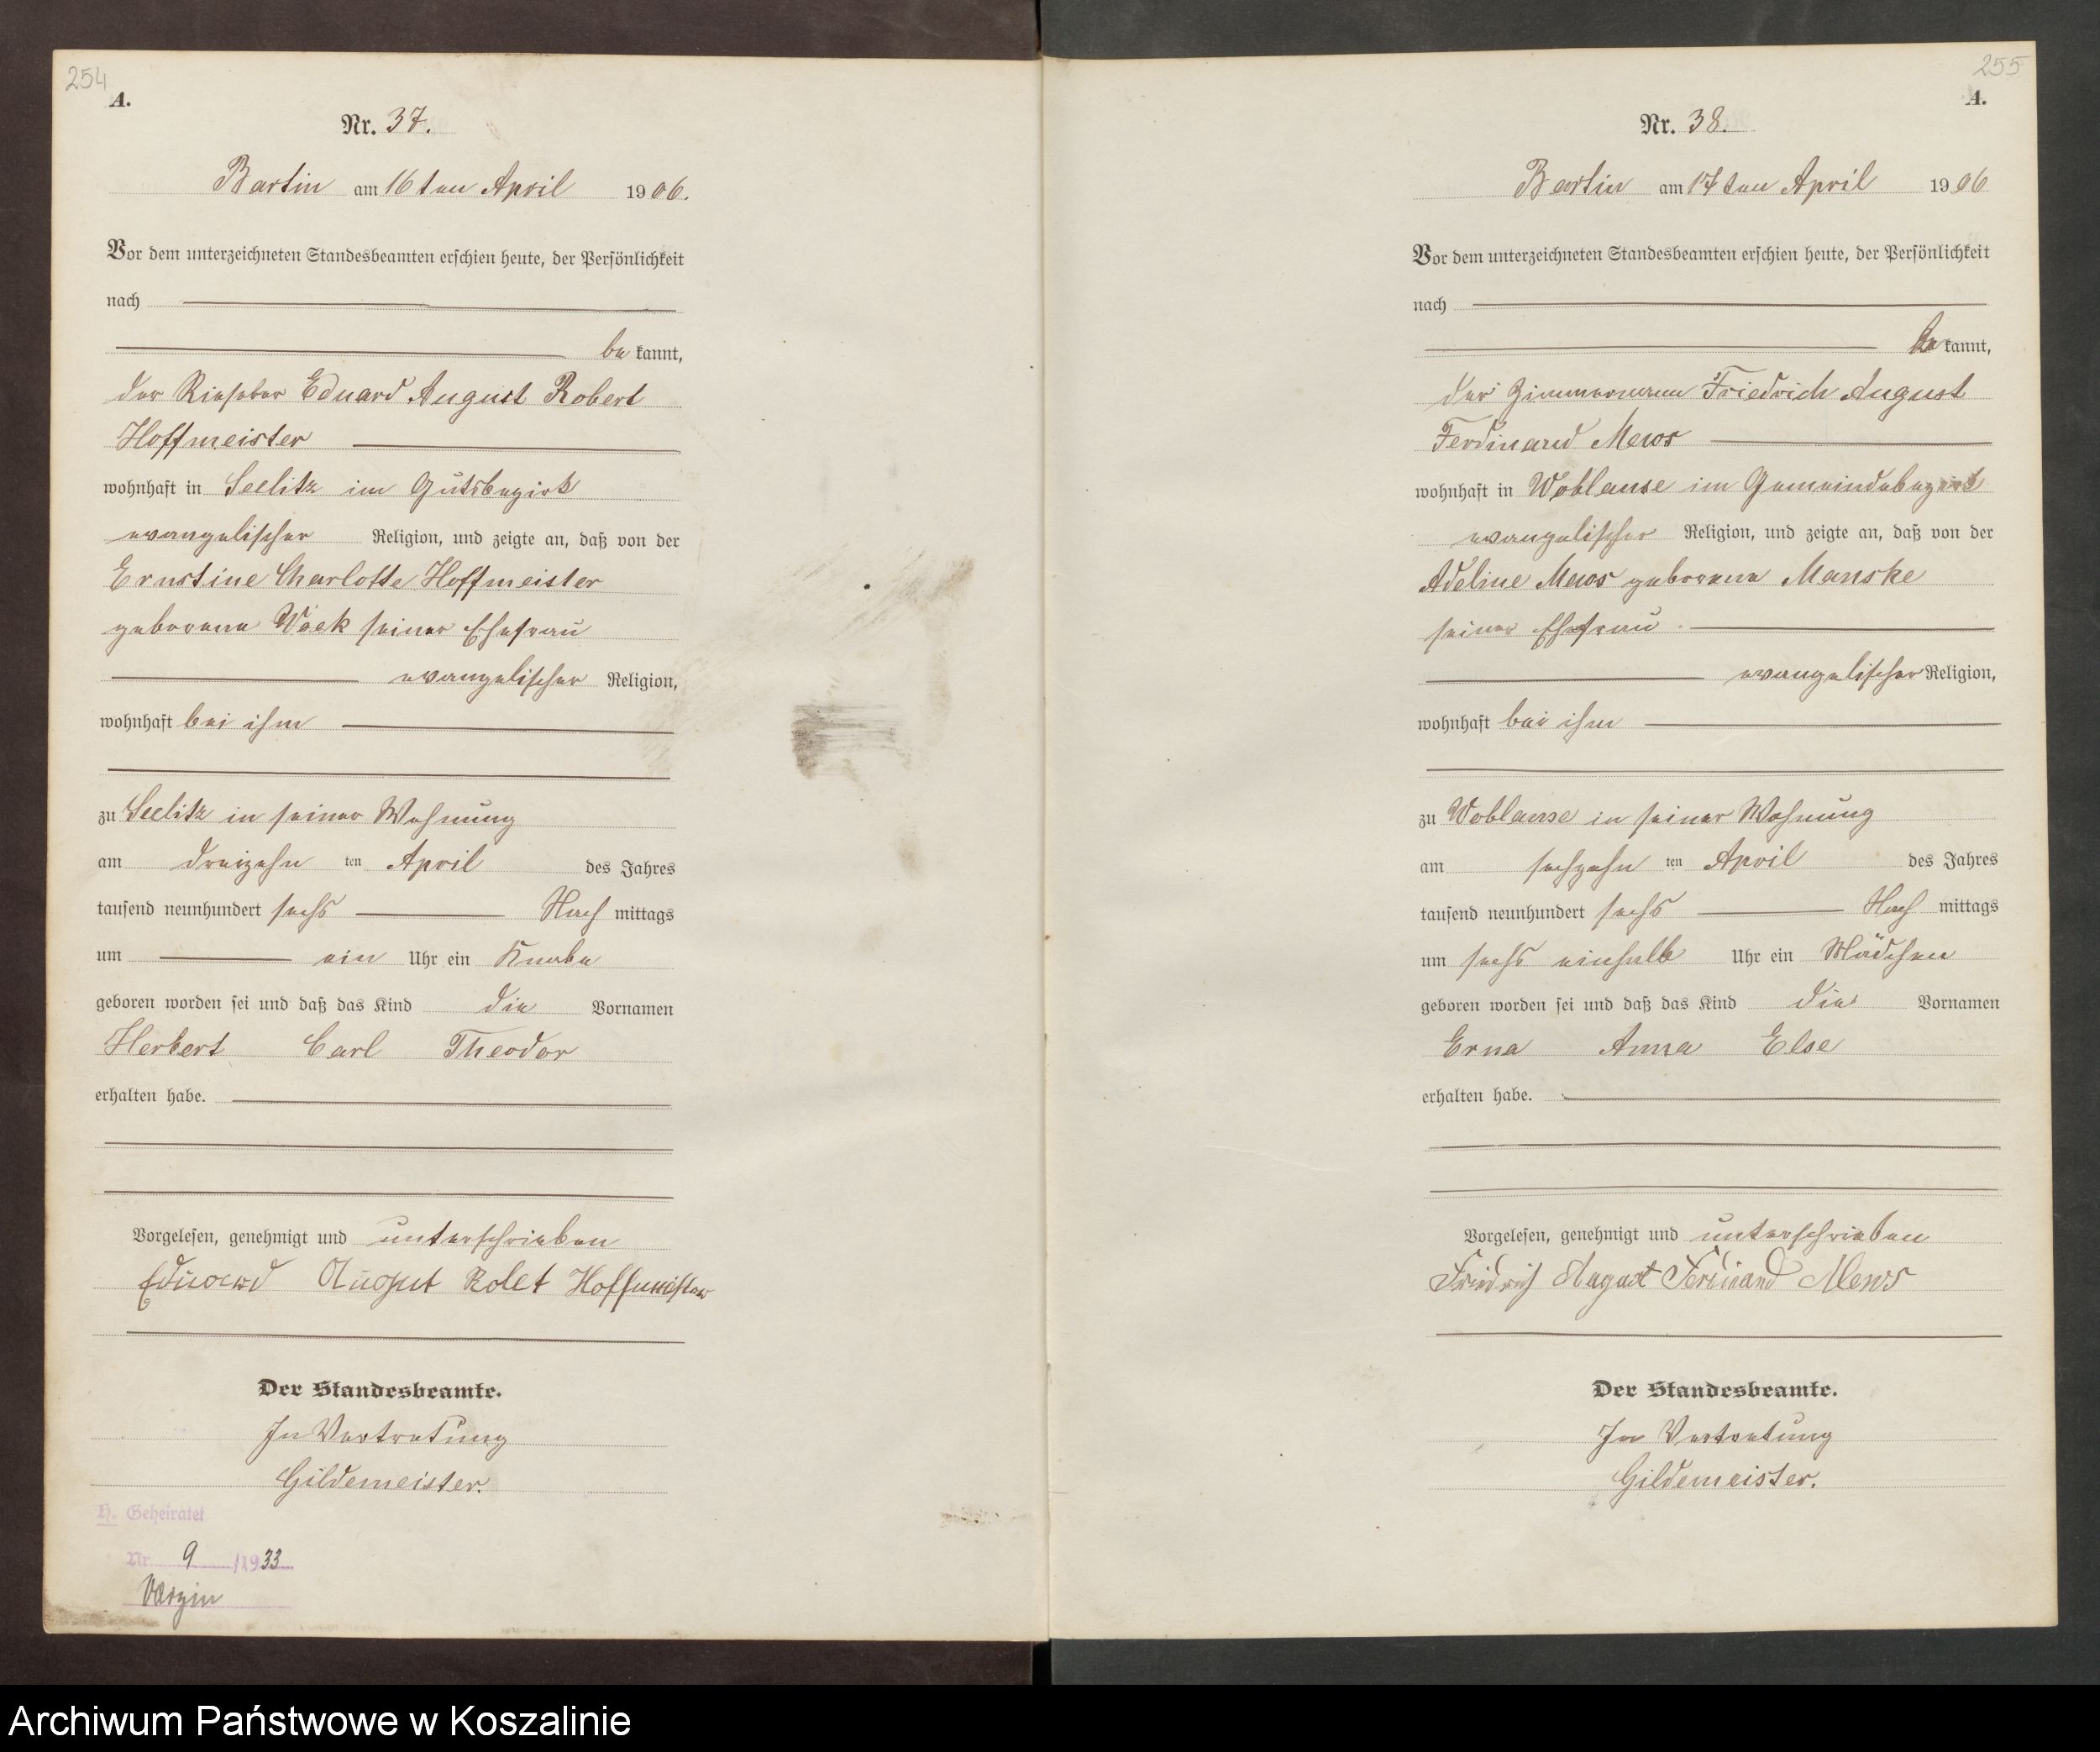 254
A.
Nr. 37.
Bartin am 16ten April 1906.
Vor dem unterzeichneten Standesbeamten erschien heute, der Persönlichkeit
nach
bekannt,
der Rieseler Eduard August Robert
Hoffmeister
wohnhaft in Seelitz im Gutsbezirk
evangelischer Religion, und zeigte an, daß von der
Ernstine Charlotte Hoffmeister
geborene Woek seiner Ehefrau
evangelischer Religion,
wohnhaft bei ihm
zu Seelitz in seiner Wohnung
am dreizehn ten April des Jahres
tausend neunhundert sechs Nach mittags
um ein Uhr ein Knabe
geboren worden sei und daß das Kind die Vornamen
Herbert Carl Theodor
erhalten habe.
Vorgelesen, genehmigt und unterschrieben
Eduard August Robet Hoffmeister
Der Standesbeamte.
In Vertretung
Gildemeister.
H. Geheiratet
Nr. 9 /1933
Varzin
255
A.
Nr. 38.
Bartin am 17ten April 1906
Vor dem unterzeichneten Standesbeamten erschien heute, der Persönlichkeit
nach
bekannt,
der Zimmermann Friedrich August
Ferdinand Mews
wohnhaft in Woblanse im Gemeindebezirk
evangelischer Religion, und zeigte an, daß von der
Adeline Mews geborene Manske
seiner Ehefrau
evangelischer Religion,
wohnhaft bei ihm
zu Woblanse in seiner Wohnung
am sechzehn ten April des Jahres
tausend neunhundert sechs Nach mittags
um sechs einhalb Uhr ein Mädchen
geboren worden sei und daß das Kind die Vornamen
Erna Anna Else
erhalten habe.
Vorgelesen, genehmigt und unterschrieben
Friedrich August Ferdinand Mews
Der Standesbeamte.
In Vertretung
Gildemeister.
Archiwum Państwowe w Koszalinie